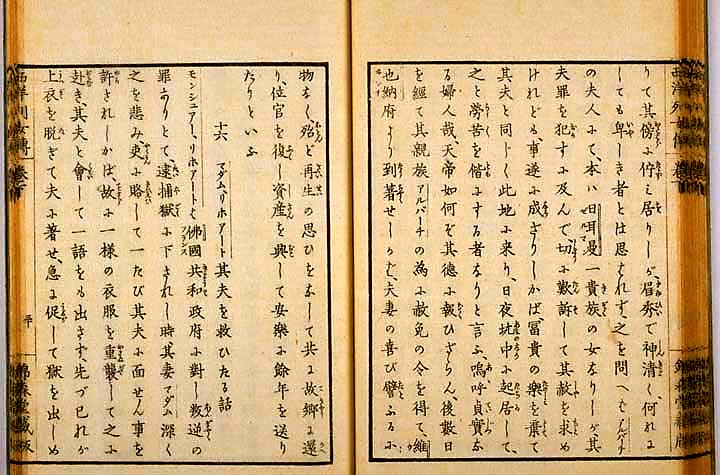 りて其傍に佇立居りしが、眉秀で神清く、何れに
しても卑しき者とは思はれず、之を問へばアルバーチ
の夫人にて、本ハ日耳曼一貴族の女なりしが其
夫罪を犯すに及んで、切に歎訴して其赦を求め
けれども事遂に成ざりしかば冨貴の樂を棄て
其夫と同じく此地に来り、日夜坑中に起居して、
之と勞苦を偕にする者なりと言ふ、嗚呼貞實な
る婦人哉、天帝如何で其德に報ひざらん、後數日
を經て其親族アルバーチの為に赦免の令を得て、維
也納府より到著せしかば、夫妻の喜び譬ふるに
物なく殆ど再生の思ひをなして共に故郷に還
り、位官を復し資産を興して安樂に餘年を送り
たりといふ
十六 マダム、リホアート其夫を救ひたる話
モンシュアー、リホアート佛國共和政府に對し叛逆の
罪ありとて、逮捕獄に下されし時其妻マダム深く
之を悲み吏に賂して一たび其夫に面せん事を
許されしかば、故に一様の衣服を重襲して之に
赴き、其夫と會して一語をも出さず、先づ己れが
上衣を脱ぎて夫に著せ、急に促して獄を出しめ